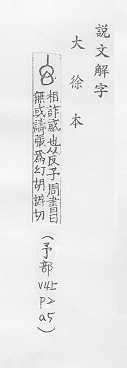 說文解字
大徐本
相詐惑也从反予周書曰
無或譸張為幻胡辦切
(予部
V4下
P2
a5)